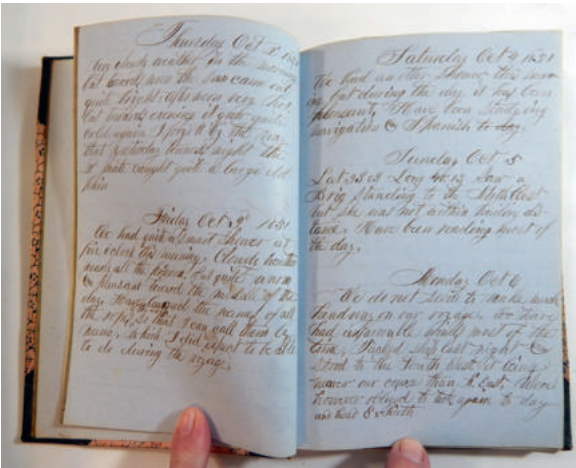 Thursday Oct 2 1851
very cloudy weather in the morning
but toward noon the sun came out
quite bright. Afternoon very clear
but towards evening it grew quite
cold again. I forgot by the way
that yesterday towards night the
2nd mate caught quite a large old
Friday Oct 3 1851
We had quite a smart shower at
five oclock this morning. Cloudy
most all the forenoon, but quite warm
& pleasant toward the middle of the
day. Have learned the names of all
the ropes, so that I can call them by
name, which I did expect to be able
to do during the voyage.
Saturday Oct 4 1851
We had another shower this morn
ing but during the day it has been
pleasant. Have been studying
navigation & Spanish to day
Sunday Oct 5
Lat 33 Long 40 Saw a
Brig standing to the
but she was not within hailing dis-
tance. Have been reading most of
the day.
Monday Oct 6
We do not seem to make much
headway on our voyage. We have
had unfavorable winds most of the
time. Tacked ship last night &
stood to the South West, it being
nearer our course than N. East. Were
however obliged to tack again to day
and head